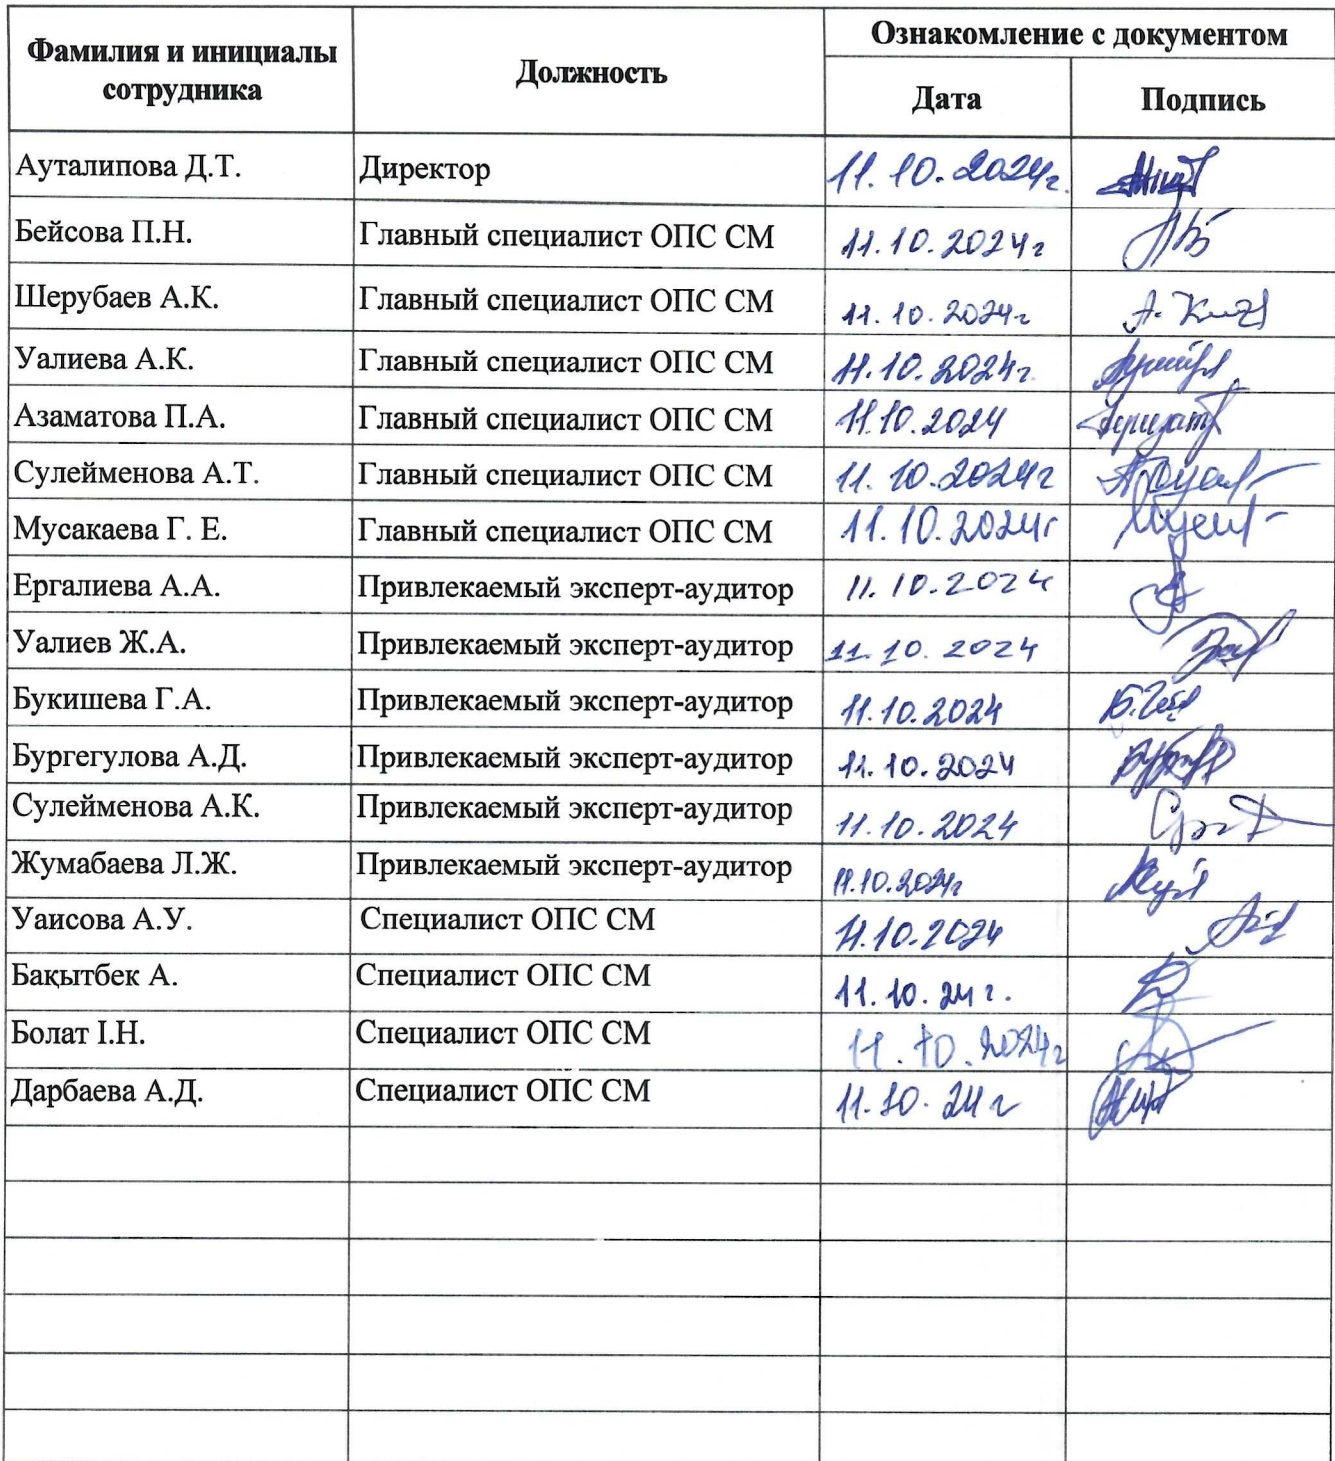 Фамилия и инициалы сотрудника Должность Ознакомление с документом
Дата Подпись
Ауталипова Д.Т. Директор 11.10.2024г.
Бейсова П.Н. Главный специалист ОПС СМ 11.10.2024г
Шерубаев А.К. Главный специалист ОПС СМ 11.10.2024г
Уалиева А.К. Главный специалист ОПС СМ 11.10.2024г.
Азаматова П.А. Главный специалист ОПС СМ 11.10.2024
Сулейменова А.Т. Главный специалист ОПС СМ 11.10.2024г
Мусакаева Г. Е. Главный специалист ОПС СМ 11.10.2024г
Ергалиева А.А. Привлекаемый эксперт-аудитор 11.10.2024
Уалиев Ж.А. Привлекаемый эксперт-аудитор 11.10.2024
Букишева Г.А. Привлекаемый эксперт-аудитор 11.10.2024
Бургегулова А.Д. Привлекаемый эксперт-аудитор 11.10.2024
Сулейменова А.К. Привлекаемый эксперт-аудитор 11.10.2024
Жумабаева Л.Ж. Привлекаемый эксперт-аудитор 11.10.2024г
Уаисова А.У. Специалист ОПС СМ 11.10.2024
Бақытбек А. Специалист ОПС СМ 11.10.24г.
Болат І.Н. Специалист ОПС СМ 11.10.2024г
Дарбаева А.Д. Специалист ОПС СМ 11.10.24г